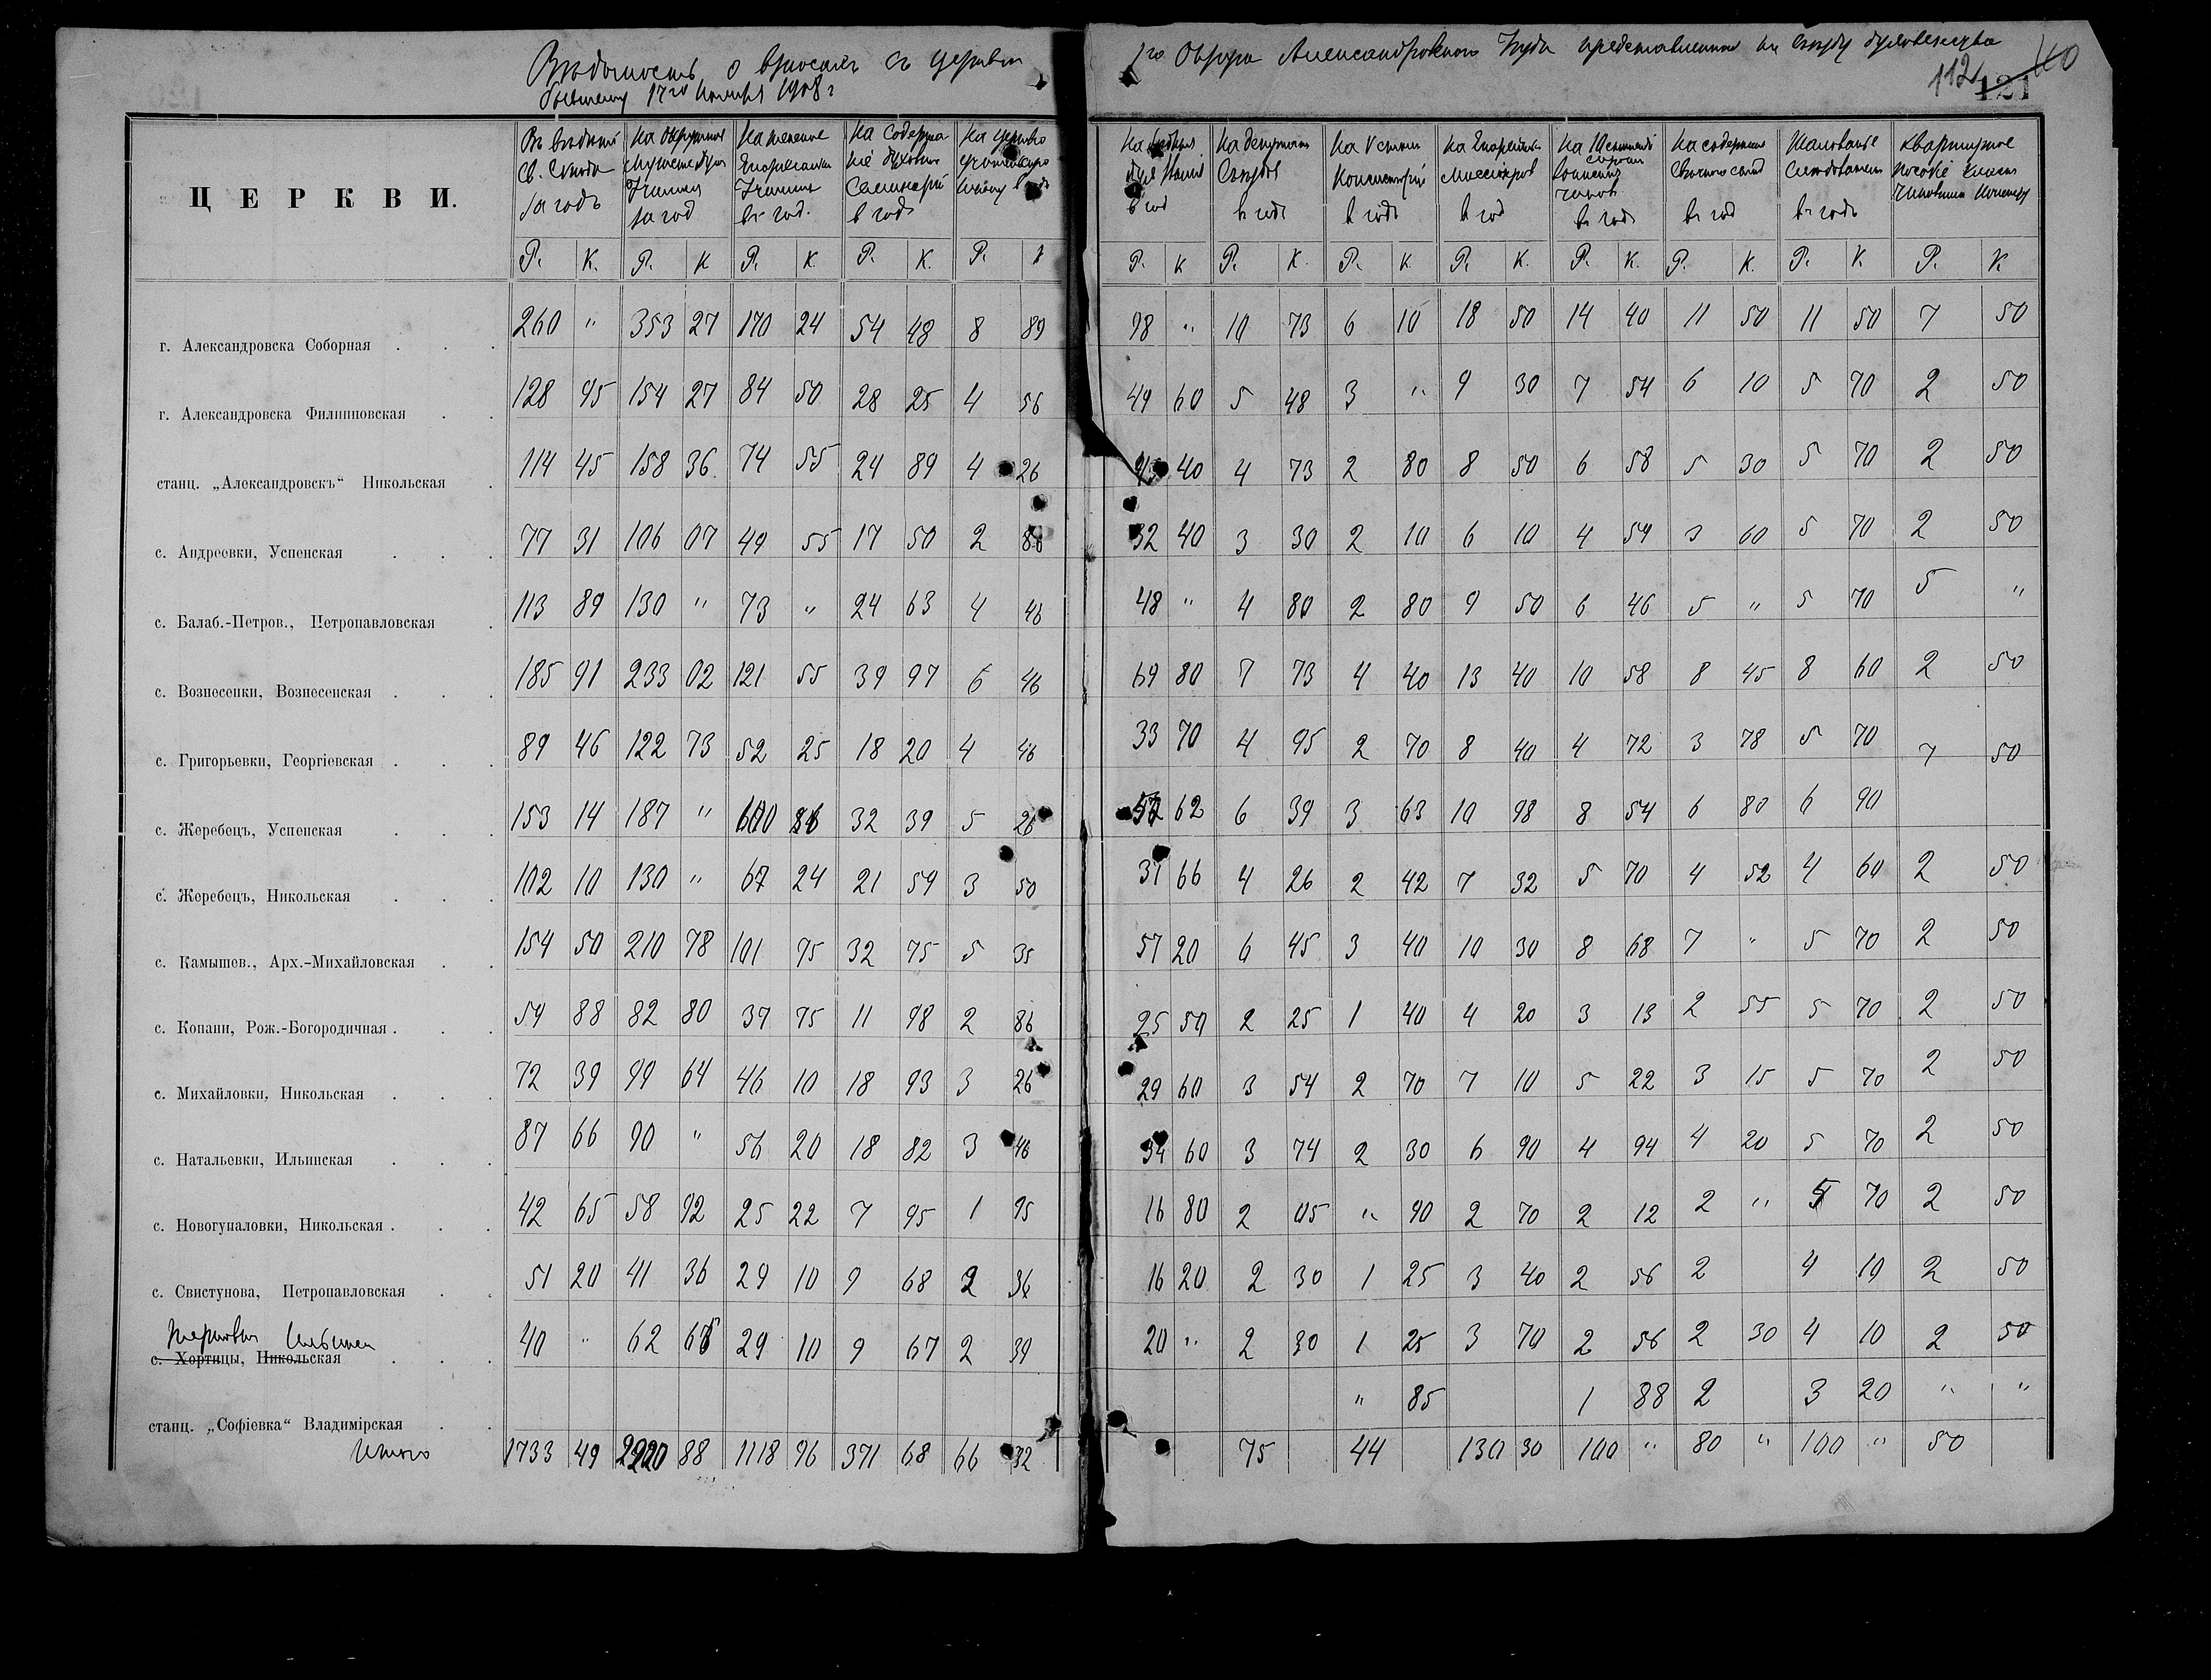 Ведомость о взносах съ церквей 1го Округа Александровского уезда представленная на съезду духовенства
бывшему 17го 1908 г
112 121 110
ЦЕРКВИ.
Въ ведение Св. Синода за годъ
На Окружное училище за год
На Епархиальное училище въ год.
На содержание духовной Семинарии в годъ
На церковно школу в годъ
На бедных дух. в год
На депутатов Съездов в годъ
На Консистории в годъ
На Епархиальных миссионеров в год
На воинских чинов въ годъ
На содержание въ год
Жалованье въ годъ
Квартирное пособие
Р. К. Р. К Р. К Р. К. Р. К Р. К Р. К Р. К. Р. К. Р. К. Р. К. Р. К Р. К
г. Александровска Соборная . . . 260 " 353 27 170 24 54 48 8 89 98 " 10 73 6 10 18 50 14 40 11 50 11 50 7 50
г. Александровска Филипповская . . 128 95 154 27 84 50 28 25 4 56 49 60 5 48 3 " 9 30 7 54 6 10 5 70 2 50
станц. „Александровскъ“ Никольская . 114 45 158 36 74 55 24 89 4 26 40 4 73 2 80 8 50 6 58 5 30 5 70 2 50
с. Андреевки, Успенская . . . 77 31 106 07 49 55 17 50 2 86 32 40 3 30 2 10 6 10 4 54 3 60 5 70 2 50
с. Балаб.-Петров., Петропавловская . 113 89 130 " 73 " 24 63 4 46 48 " 4 80 2 80 9 50 6 46 5 " 5 70 5 "
с. Вознесенки, Вознесенская . . . 185 91 233 02 121 55 39 97 6 46 69 80 7 73 4 40 13 40 10 58 8 45 8 60 2 50
с. Григорьевки, Георгіевская . . . 89 46 122 73 52 25 18 20 4 46 33 70 4 95 2 70 8 40 4 72 3 78 5 70 7 50
с. Жеребецъ, Успенская . . . 153 14 187 " 32 39 5 26 62 6 39 3 63 10 98 8 54 6 80 6 90
с. Жеребецъ, Никольская . . . 102 10 130 " 67 24 21 59 3 50 37 66 4 26 2 42 7 32 5 70 4 52 4 60 2 50
с. Камышев., Арх.-Михайловская . . 154 50 210 78 101 75 32 75 5 35 57 20 6 45 3 40 10 30 8 68 7 " 5 70 2 50
с. Копани, Рож.-Богородичная . . . 54 88 82 80 37 75 11 98 2 86 25 50 2 25 1 40 4 20 3 13 2 55 5 70 2 50
с. Михайловки, Никольская . . . 72 39 99 64 46 10 18 93 3 26 29 60 3 54 2 70 7 10 5 22 3 15 5 70 2 50
с. Натальевки, Ильинская . . . 87 66 90 " 56 20 18 82 3 46 34 60 3 74 2 30 6 90 4 94 4 20 5 70 2 50
с. Новогупаловки, Никольская . . . 42 65 58 92 25 22 7 95 1 95 16 80 2 05 " 90 2 70 2 12 2 " 5 70 2 50
с. Свистунова, Петропавловская . . 51 20 41 36 29 10 9 68 2 36 16 20 2 30 1 25 3 40 2 56 2 4 10 2 50
с. Хортицы, Никольская . . . 40 " 62 29 10 9 67 2 39 20 " 2 30 1 25 3 70 2 56 2 30 4 10 2 50
станц. „Софіевка“ Владимірская . . " 85 1 88 2 3 20 " "
Итого 1733 49 88 1118 96 371 68 66 32 75 44 130 30 100 " 80 " 100 " 50